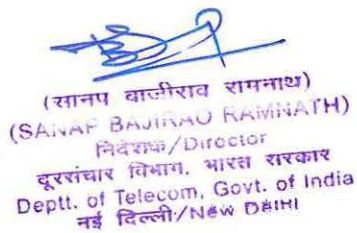 (सानप बाजीराव रामनाथ)
(SANAP BAJIRAO RAMNATH)
निदेशक/Director
दूरसंचार विभाग, भारत सरकार
Deptt. of Telecom, Govt. of India
नई दिल्ली/New Delhi